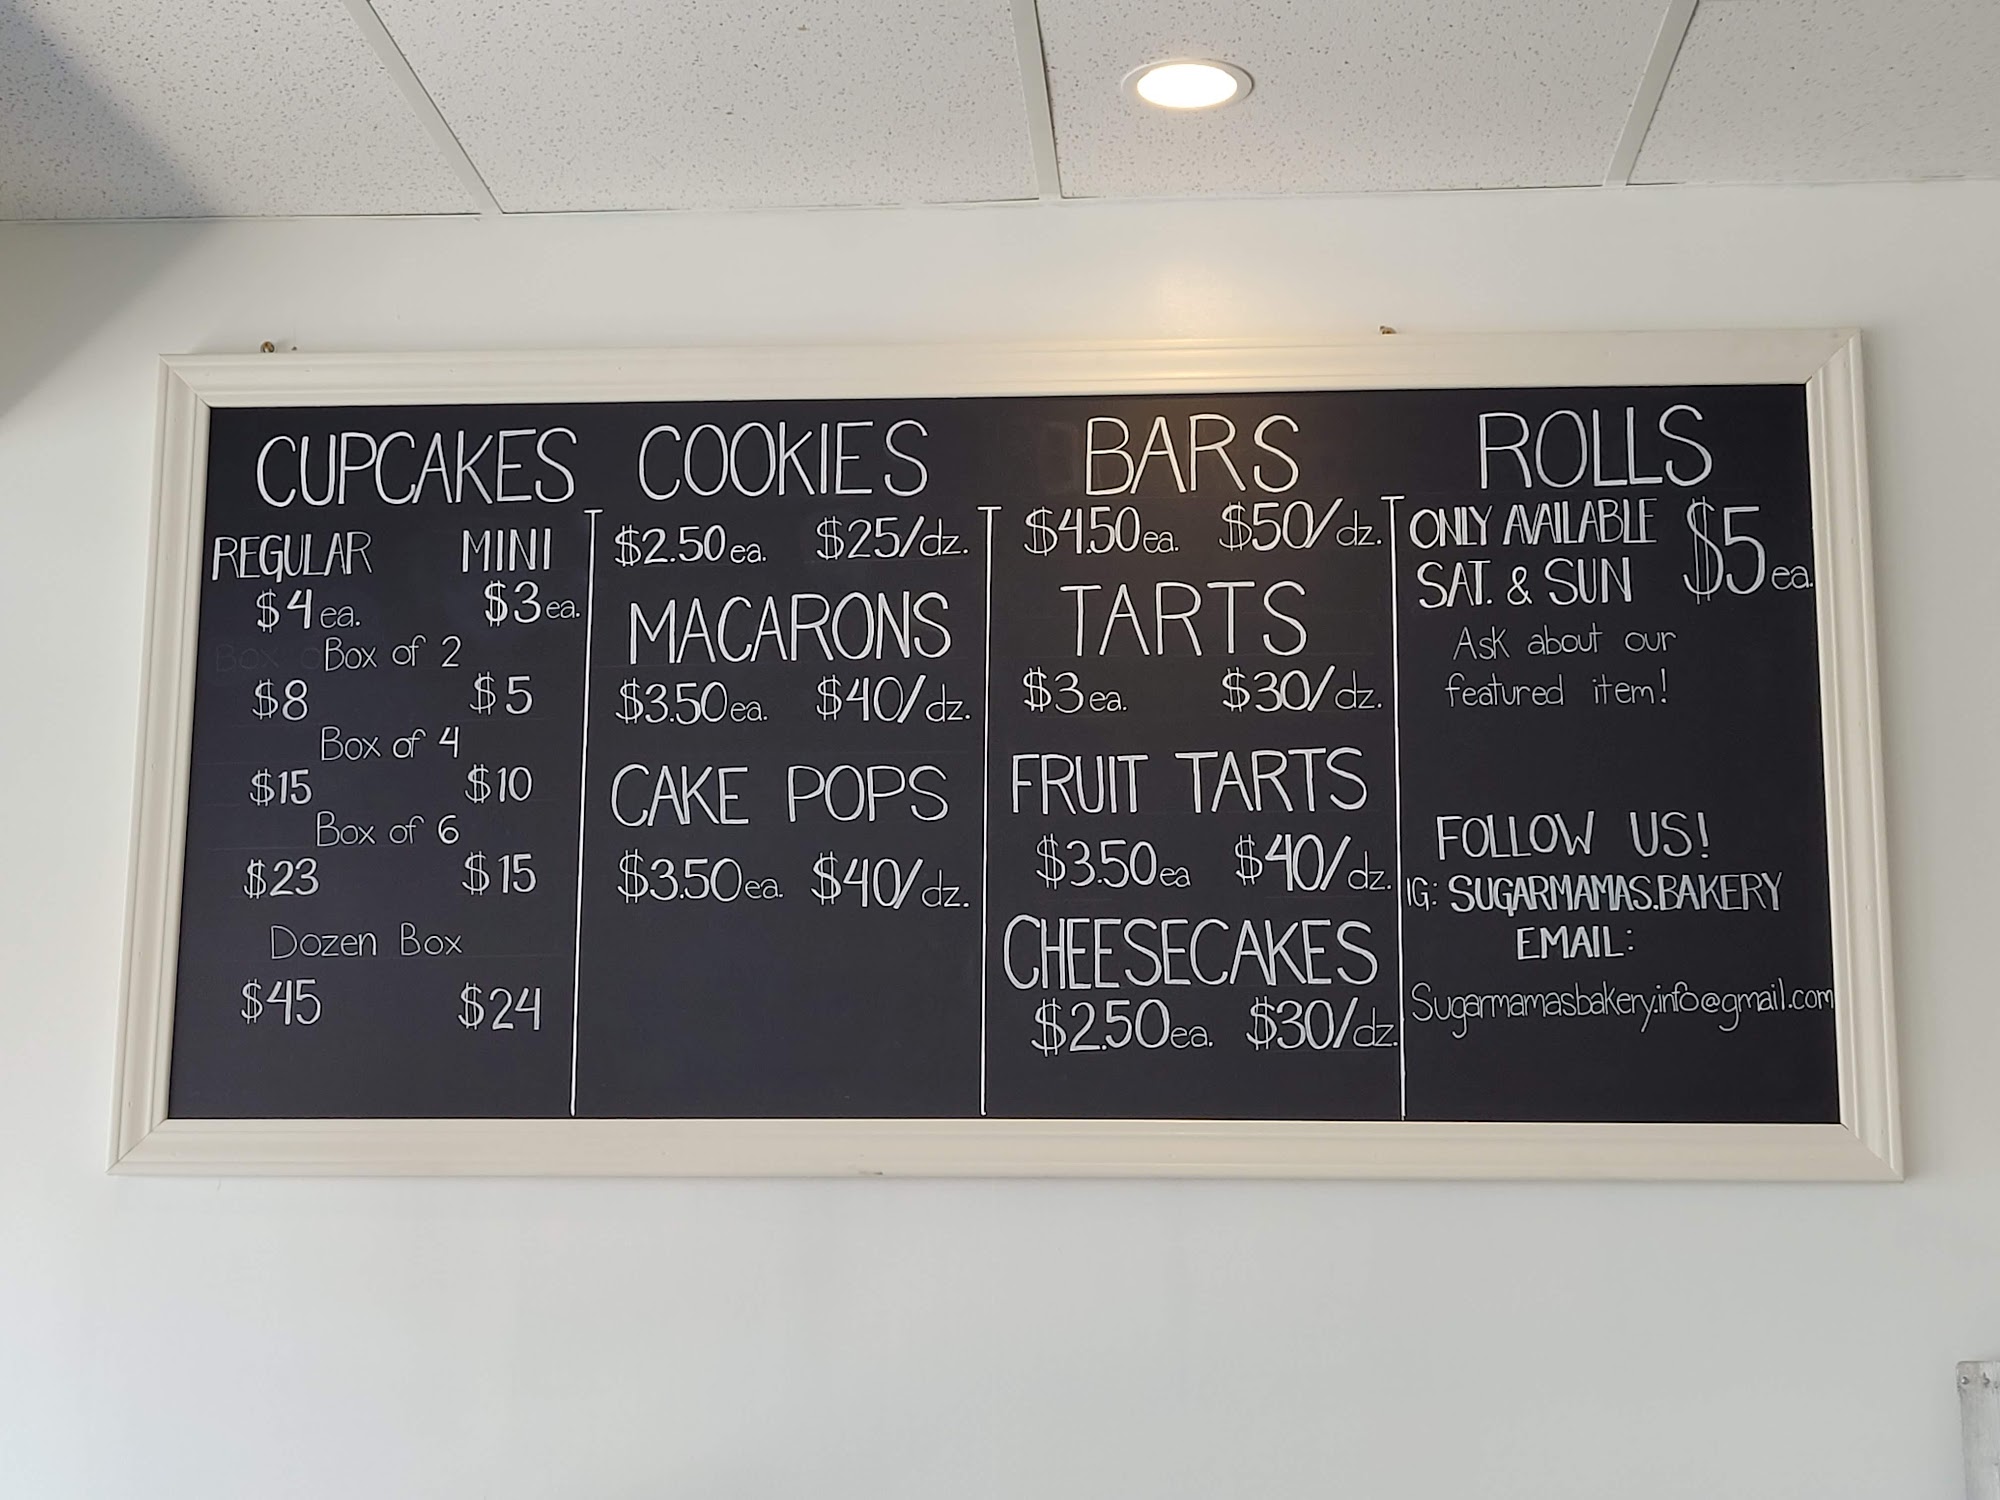 CUPCAKES
REGULAR MINI
$4 ea. $3 ea.
Box of 2
$8 $5
Box of 4
$15 $10
Box of 6
$23 $15
Dozen Box
$45 $24
COOKIES
$2.50 ea. $25/dz.
MACARONS
$3.50 ea. $40/dz.
CAKE POPS
$3.50 ea. $40/dz.
BARS
$4.50 ea. $50/dz.
TARTS
$3 ea. $30/dz.
FRUIT TARTS
$3.50 ea $40/dz.
CHEESECAKES
$2.50 ea. $30/dz.
ROLLS
ONLY AVAILABLE
SAT. & SUN $5 ea.
Ask about our
featured item!
FOLLOW US!
IG: SUGARMAMAS.BAKERY
EMAIL:
Sugarmamasbakery.info@gmail.com